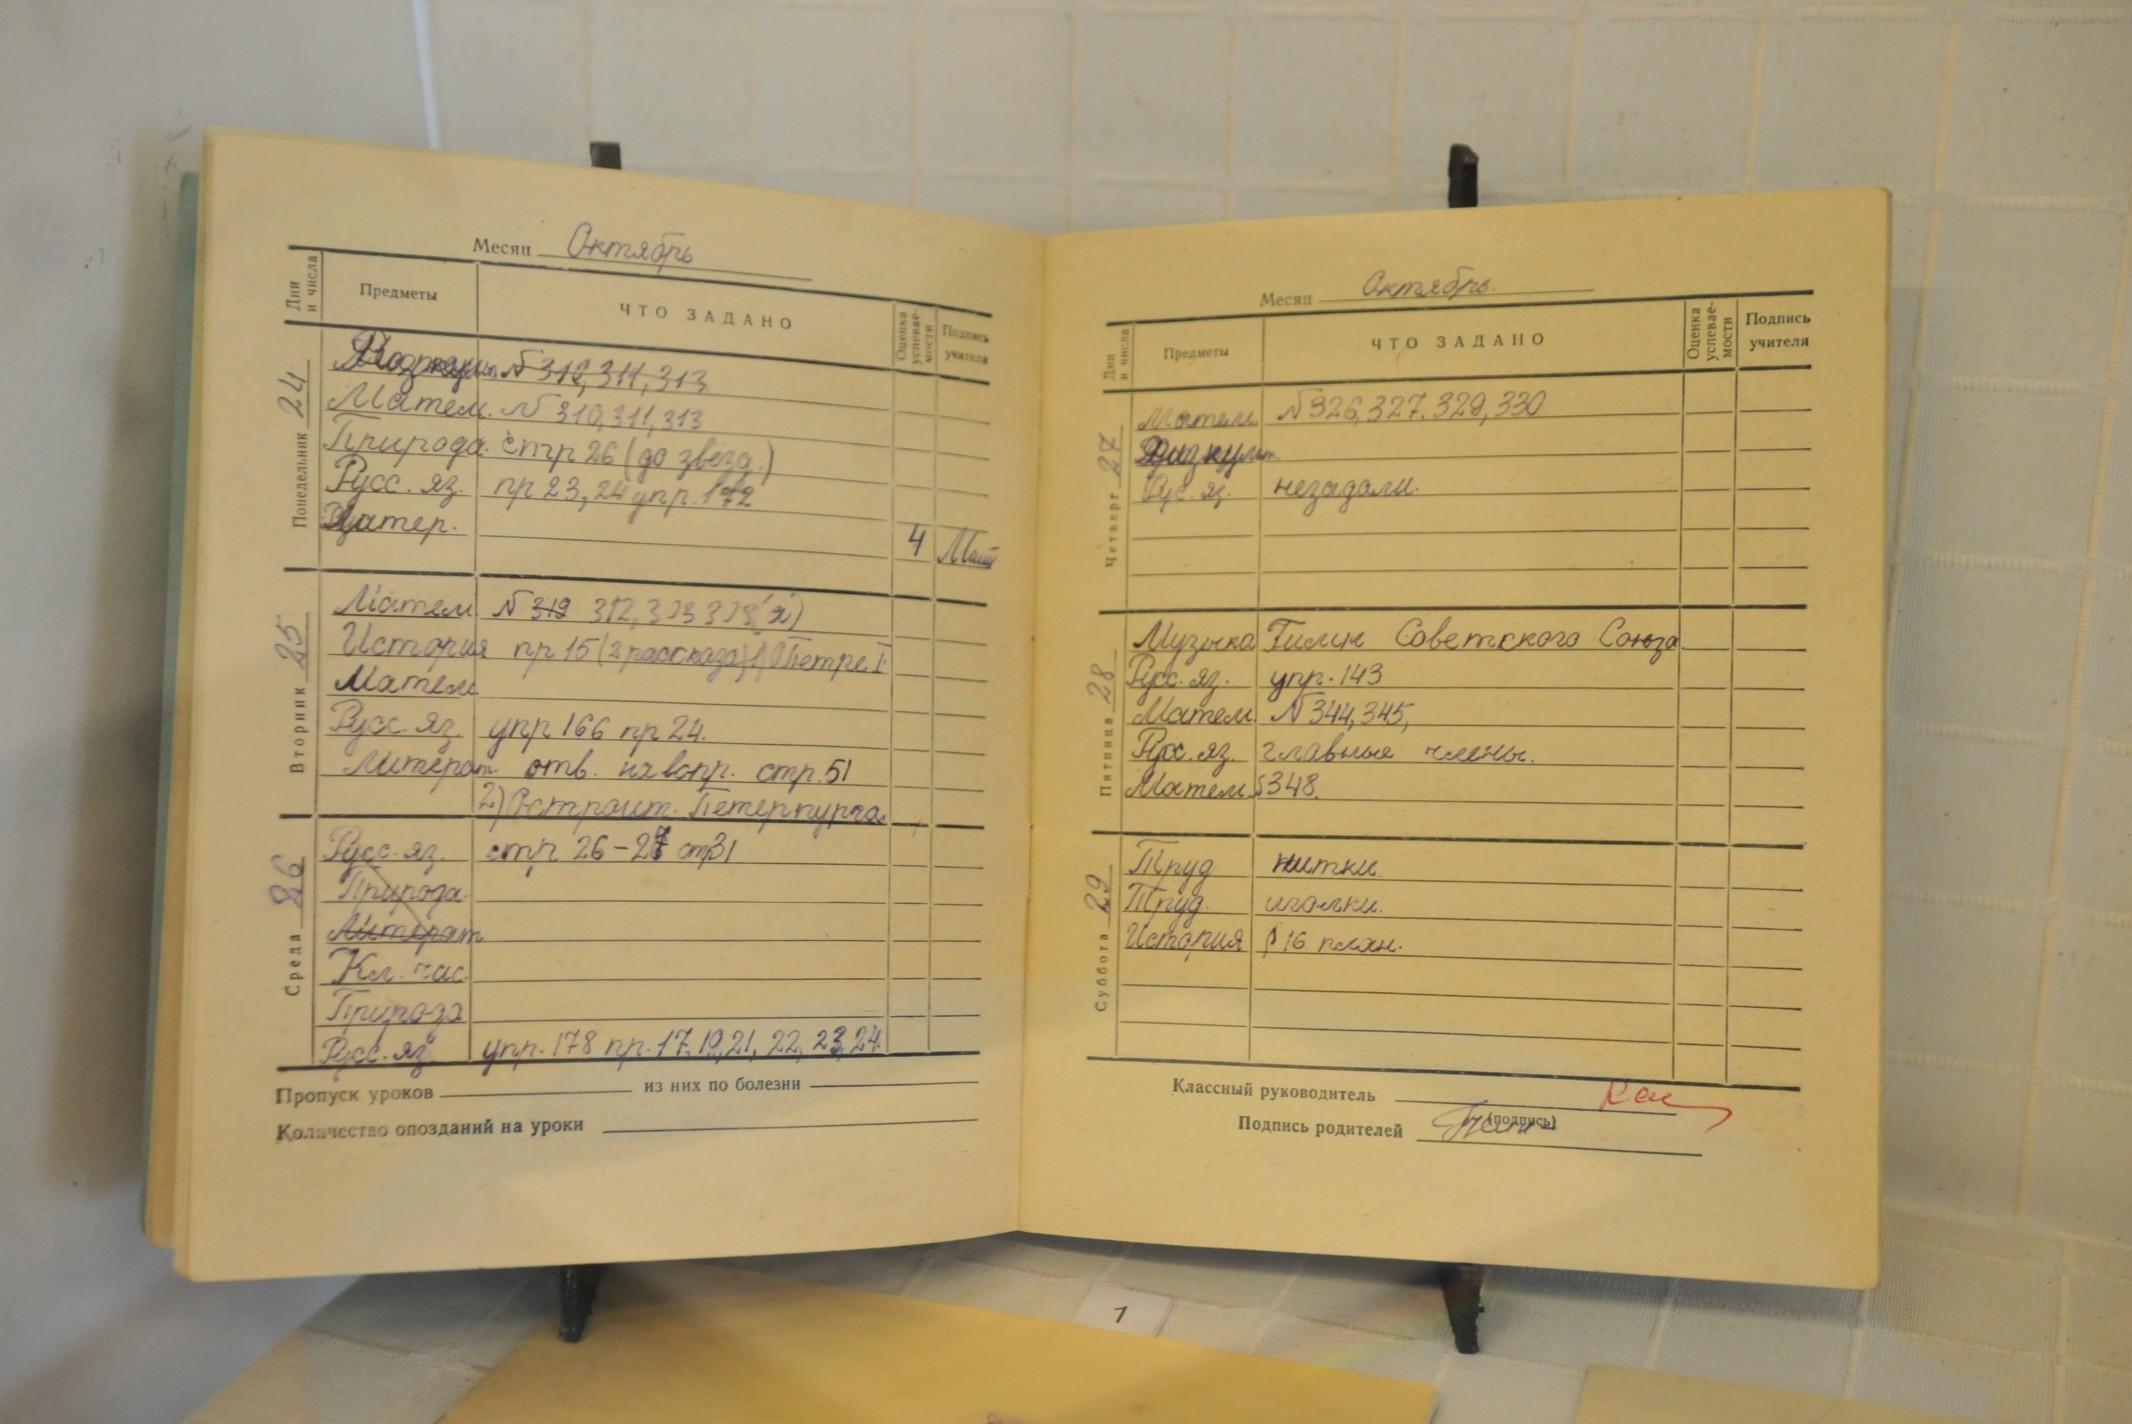 Месяц Октябрь
Дни и числа Предметы ЧТО ЗАДАНО Оценка успеваемости Подпись учителя
Понедельник 24
№ 310, 311, 313
Матем. № 310, 311, 313
Природа. стр 26 (до звёзд.)
Русс. яз. пр 23, 24 упр. 172
4
Вторник 25
Матем № 319 312,
История пр 15 (2 рассказа) 1) О Петре I
Матем
Русс. яз. упр 166 пр 24.
Литерат. отв. на вопр. стр. 51
2) О строит. Петеркурга
Среда 26
Русс. яз. стр 26-27 стр31
Природа.
Литерат
Кл. час.
Природа
Русс. яз. упр. 178 пр. 17, 19, 21, 22, 23, 24.
Пропуск уроков из них по болезни
Количество опозданий на уроки
Месяц Октябрь.
Дни и числа Предметы ЧТО ЗАДАНО Оценка успеваемости Подпись учителя
Четверг 27
Матем. № 326, 327, 329, 330
Физкульт.
Рус. яз. незадали.
Пятница 28
Музыка Гимн Советского Союза
Русс. яз. упр. 143
Матем. № 344, 345,
Русс. яз. главные члены.
Матем. 348.
Суббота 29
Труд нитки.
Труд. иголки.
История § 16 план.
Классный руководитель
(подпись)
Подпись родителей
1